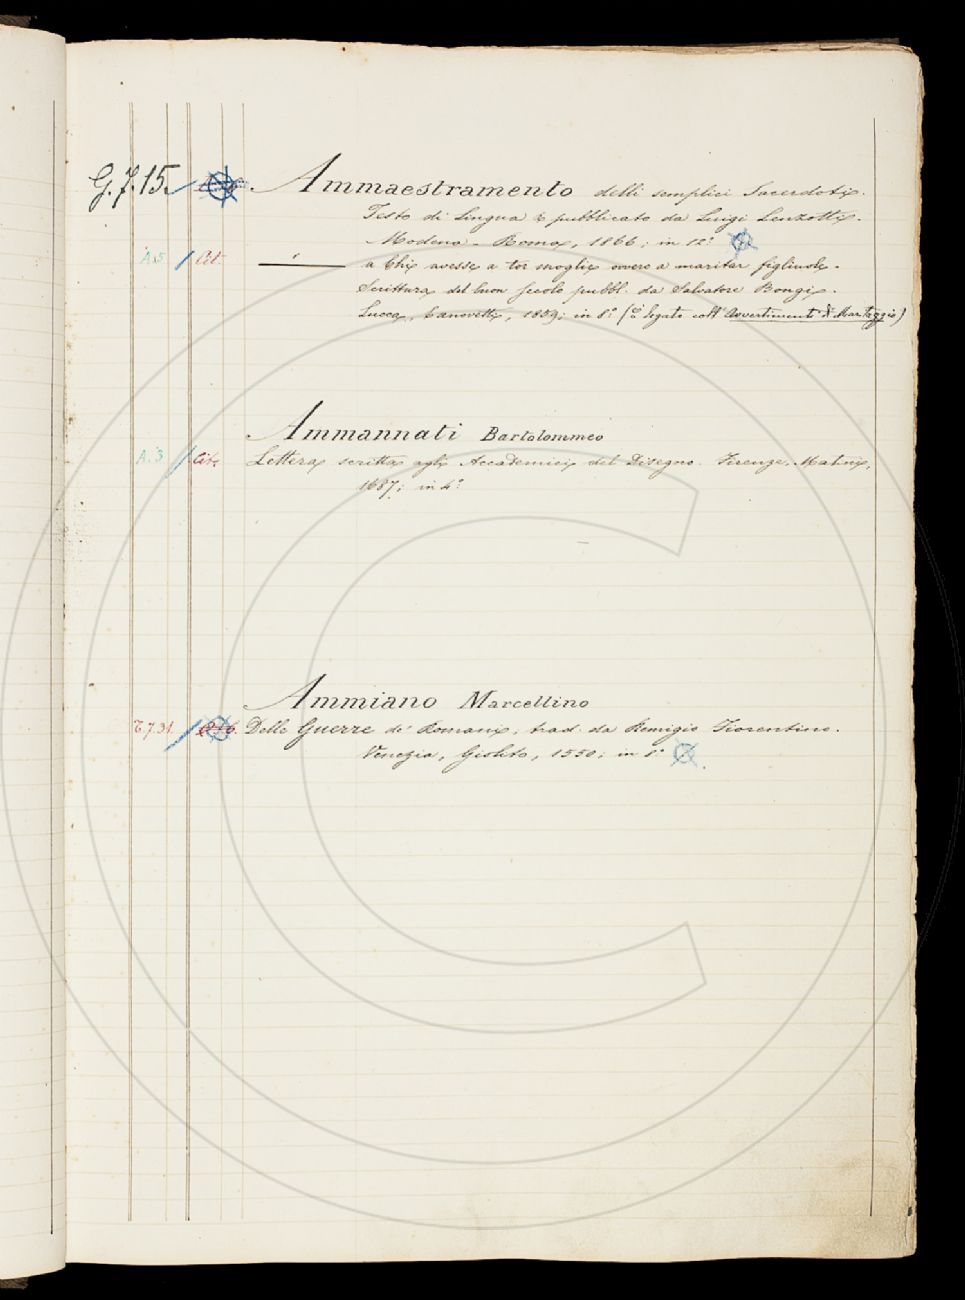 G.7.15. Ammaestramento delli semplici Sacerdoti.
Testo di Lingua pubblicato da Luigi Lenzotti.
Modena - Roma, 1866; in 12°
A.5 Cit. — a chi avesse a tor moglie ovvero a maritar figliuole.
Scrittura del buon secolo pubbl. da Salvatore Bongi.
Lucca, Canovetti, 1859; in 8° (è legato coll' Avvertimenti di Maritaggio)
Ammannati Bartolommeo
A.3 Cit. Lettera scritta agli Accademici del Disegno. Firenze, Matini,
1687; in 4°
Ammiano Marcellino
T.7.31. Delle Guerre de' Romani, trad. da Remigio Fiorentino.
Venezia, Giolito, 1550; in 8°